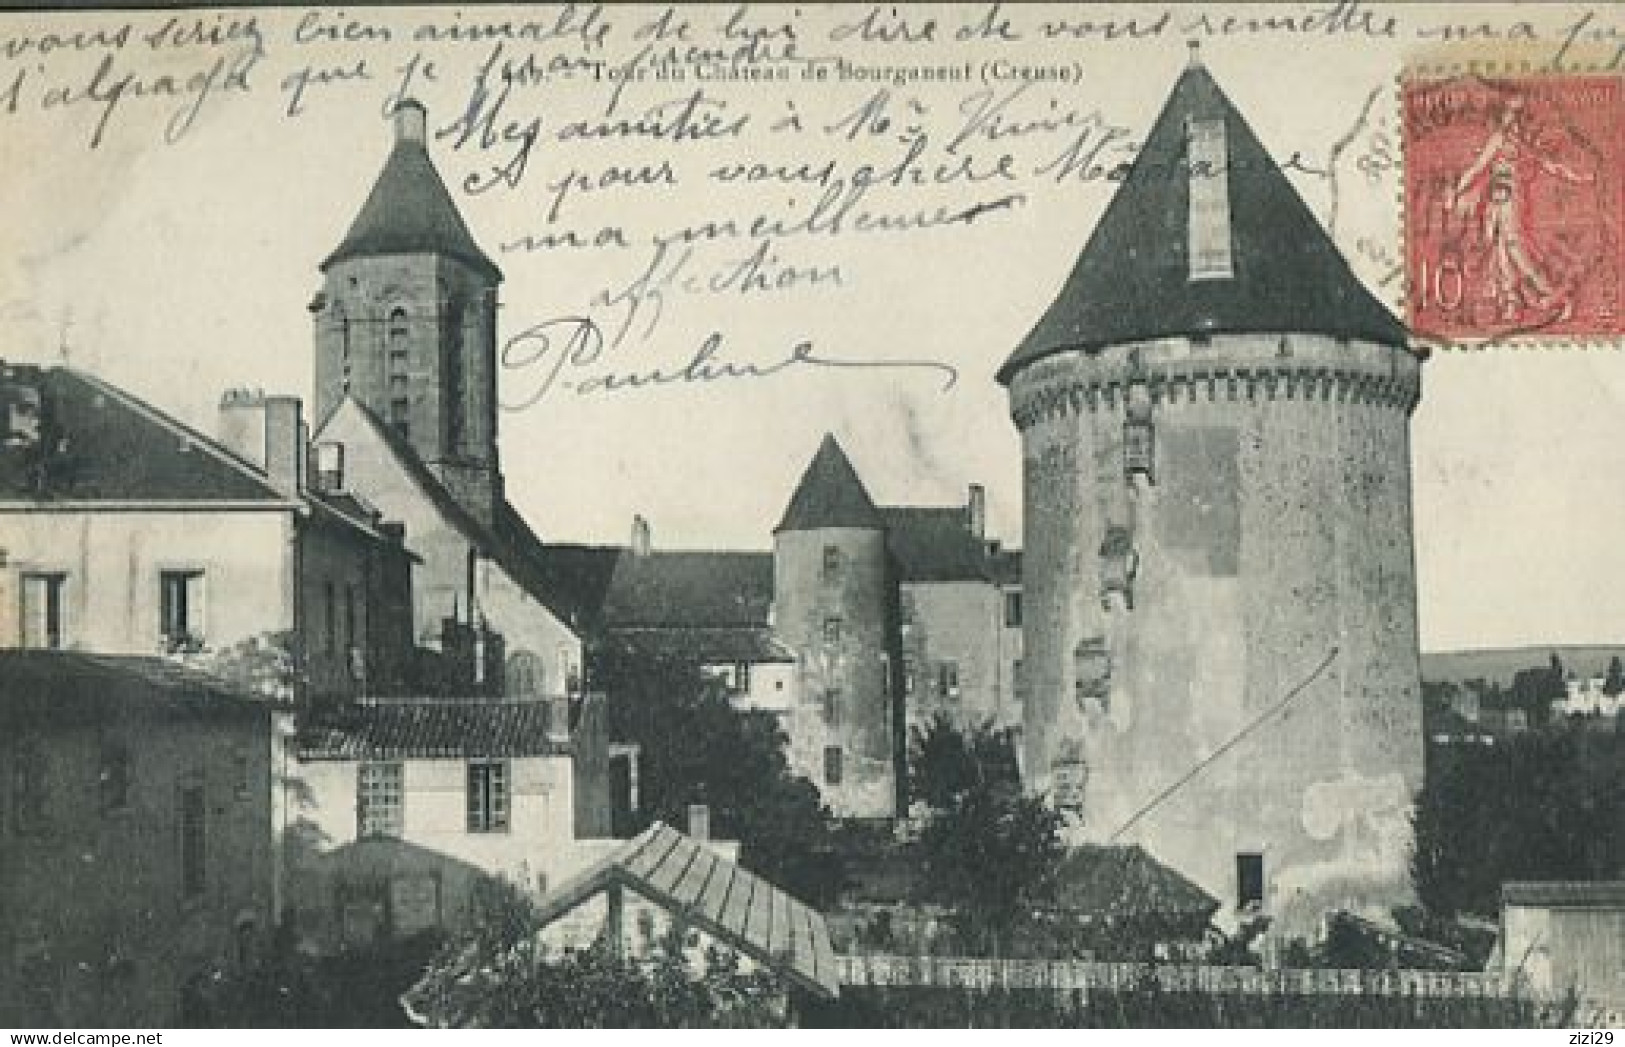 vous seriez bien aimable de lui dire de vous remettre ma
d'alpaga que je ferai prendre
Tour du Château de Bourganeuf (Creuse)
Mes amitiés à Mr Vivier
et pour vous chère Madame
ma meilleure
affection
Pauline
10
delcampe.net
zizi29